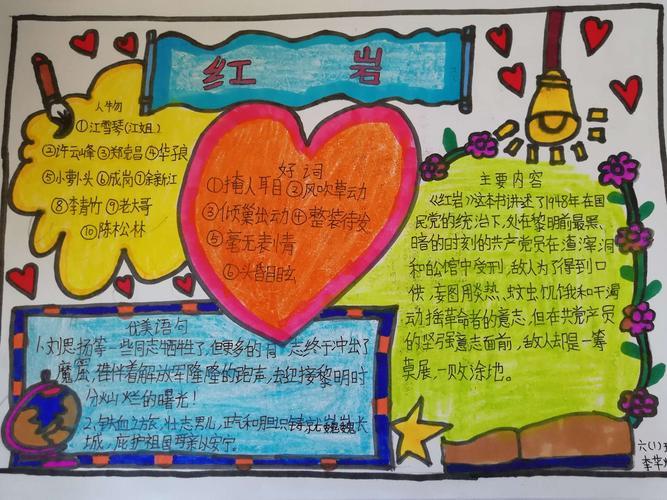 红 岩
人牛勿
①江雪琴(江姐)
②许云峰③郑克昌④华子良
⑤小萝卜头⑥成岗⑦余新江
⑧李青竹⑨老大哥
⑩陈松林
好词
①掩人耳目②风吹草动
③倾巢出动④整装待发
⑤毫无表情
⑥头昏目眩
主要内容
《红岩》这本书讲述了1948年在国
民党的统治下,处在黎明前最黑
暗的时刻的共产党员在渣滓洞
和的馆中受刑,敌人为了得到口
供,妄图用炎热、蚊虫饥饿和干渴
动摇革命者的意志,但在共产党员
的坚强意志面前,敌人却是一筹
莫展,一败涂地。
优美语句
1.刘思扬等一些同志牺牲了,但更多的同志终于冲出了
魔窟,伴着解放军隆隆的跑声,去迎接黎明时
分火灿烂的曙光!
2、铁血之旅,壮志男儿,正气和胆识铸就巍巍长
城,庇护祖国母亲以安宁。
六(1)
李芊